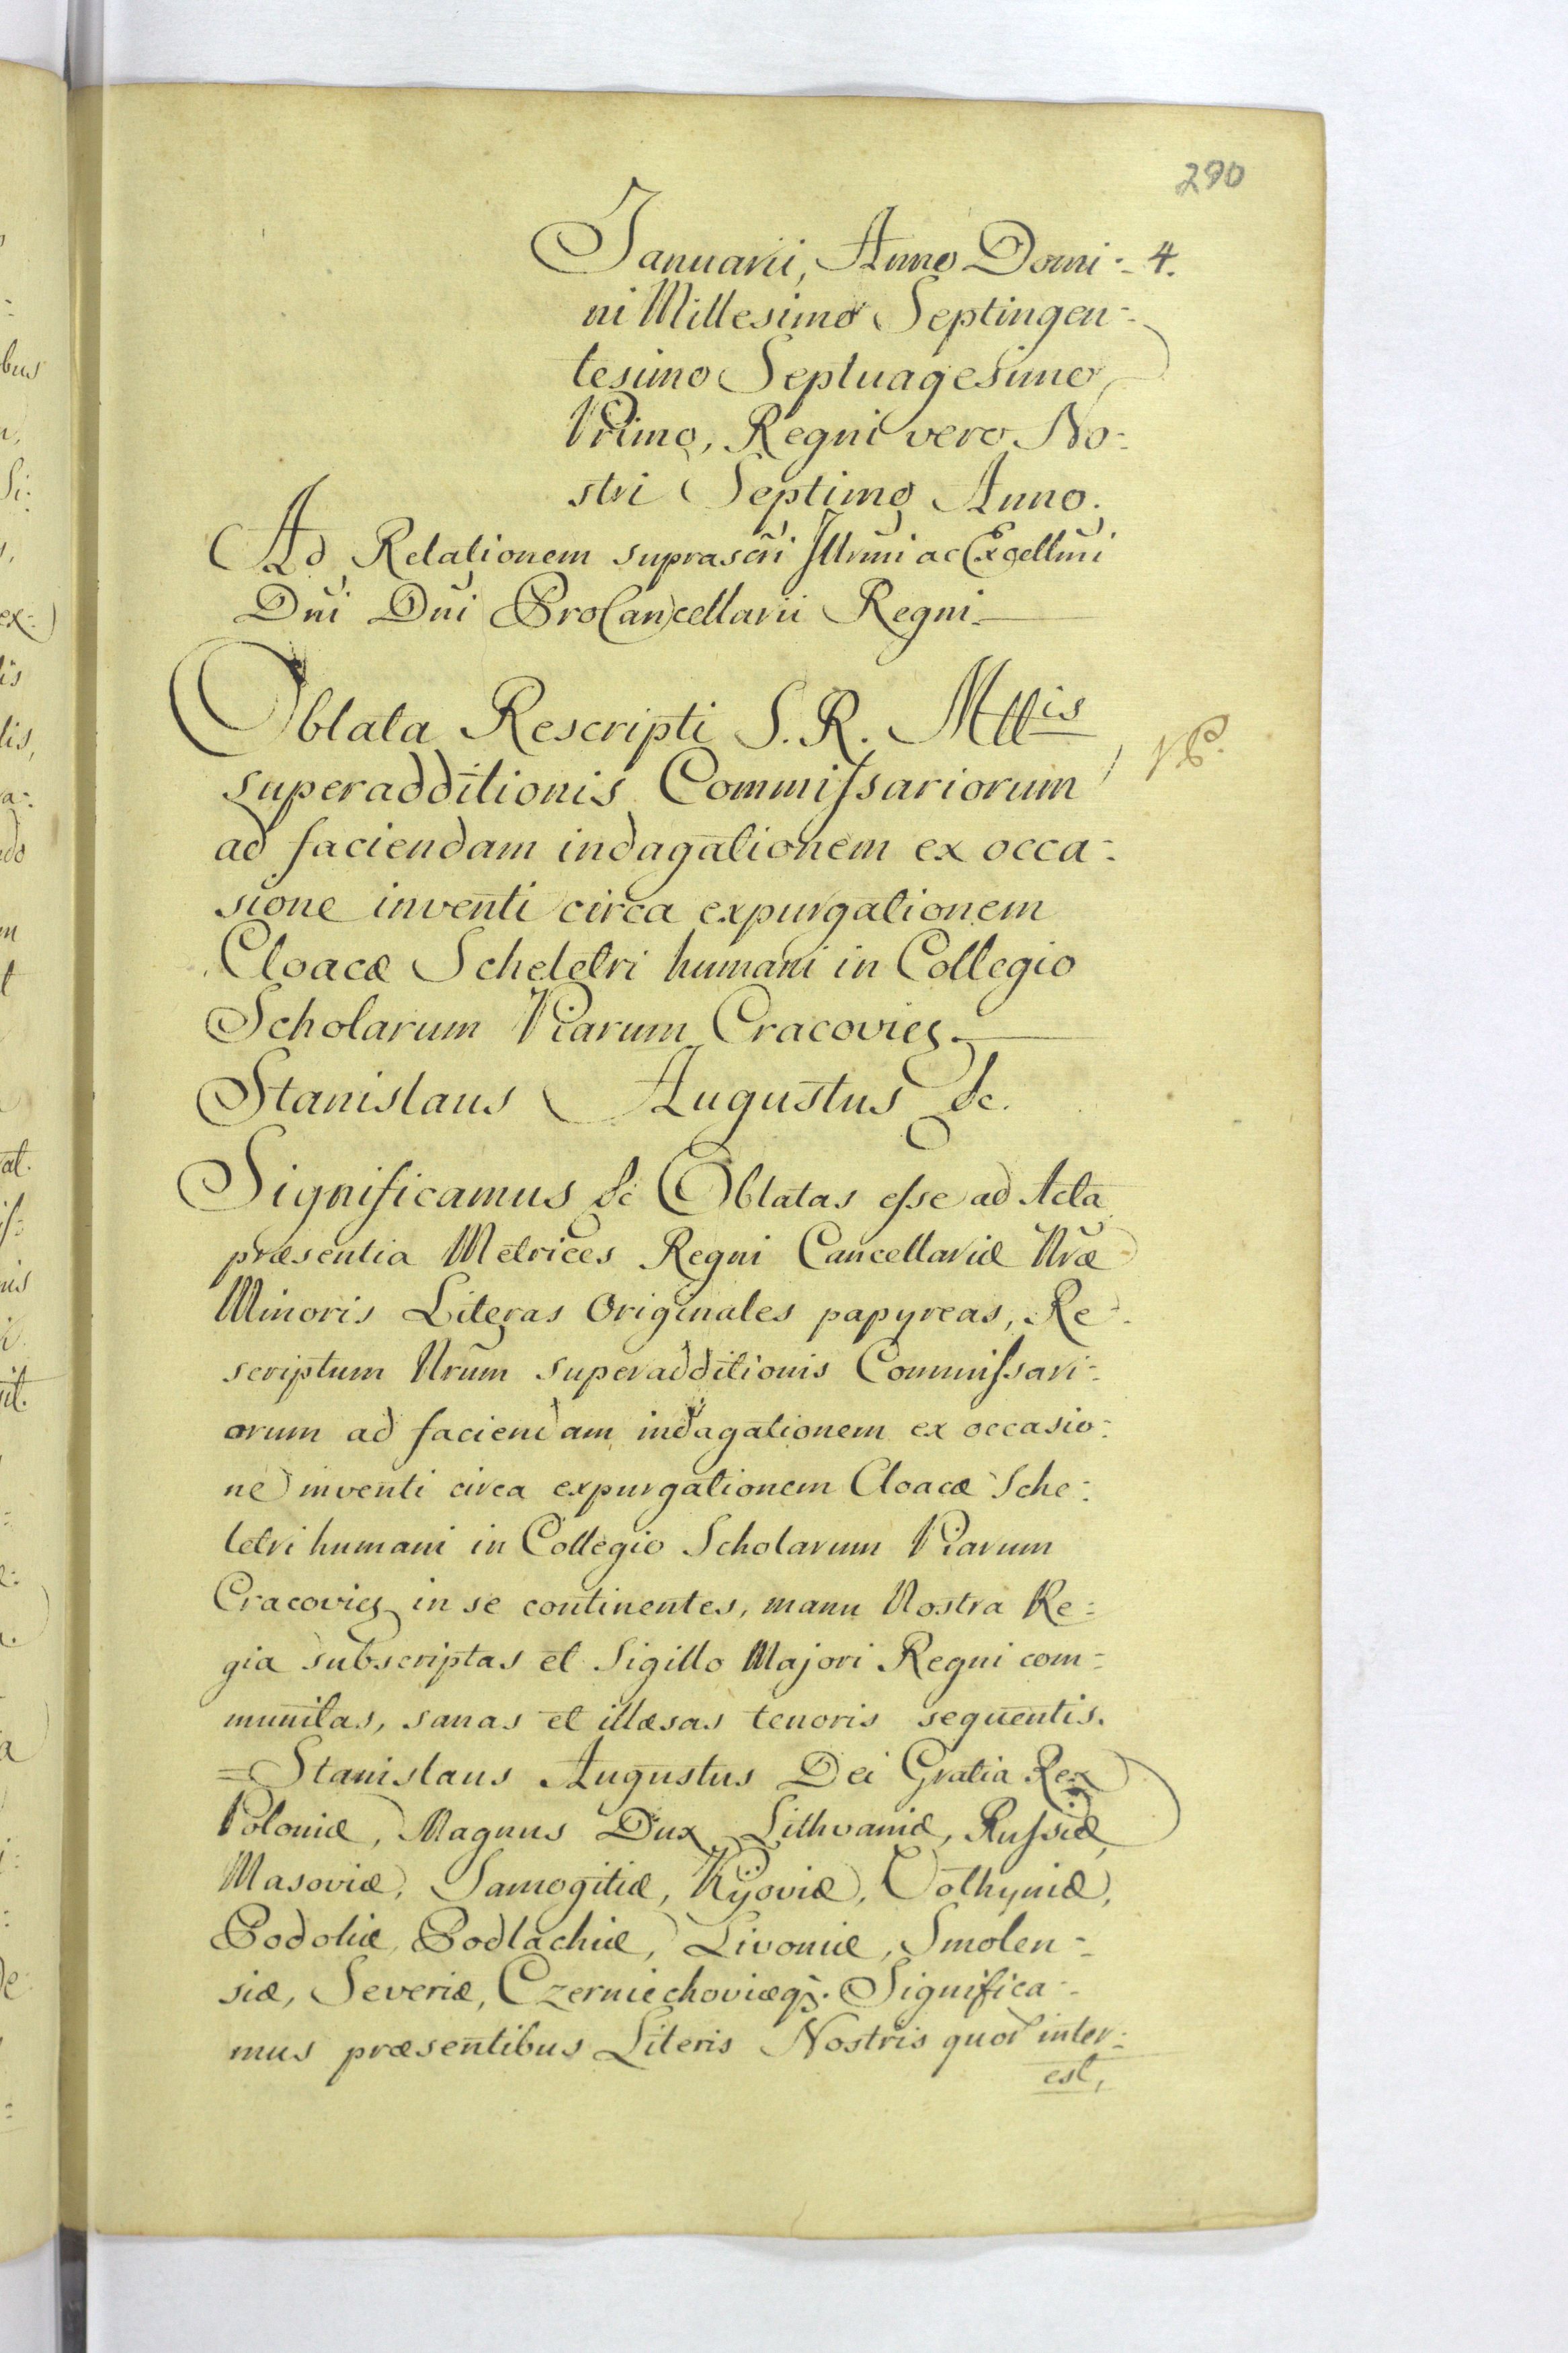 290
Januarii, Anno Domi- 4.
ni Millesimo Septingen-
tesimo Septuagesimo
Primo, Regni vero No-
stri Septimo Anno.
Ad Relationem suprascri Illrmi ac Excellmi
Dni Dni ProCancellarii Regni.
Oblata Rescripti S. R. Mttis
superadditionis Commissariorum
ad faciendam indagationem ex occa-
sione inventi circa expurgationem
Cloacæ Scheletri humani in Collegio
Scholarum Piarum Cracovieę.
Stanislaus Augustus &c.
Significamus &c Oblatas esse ad Acta
præsentia Metrices Regni Cancellariæ Nræ
Minoris Literas Originales papyreas, Re-
scriptum Nrum superadditionis Commissari-
orum ad faciendam indagationem ex occasio-
ne inventi circa expurgationem Cloacæ Sche-
letri humani in Collegio Scholarum Piarum
Cracovię in se continentes, manu Nostra Re-
gia subscriptas et Sigillo Majori Regni com-
munitas, sanas et illæsas tenoris sequentis.
=Stanislaus Augustus Dei Gratia Rex
Poloniæ, Magnus Dux Lithvaniæ, Russiæ,
Masoviæ, Samogitiæ, Kijoviæ, Volhyniæ,
Podoliæ, Podlachiæ, Livoniæ, Smolen-
siæ, Severiæ, Czerniechoviæq;. Significa-
mus præsentibus Literis Nostris quor inter-
est,